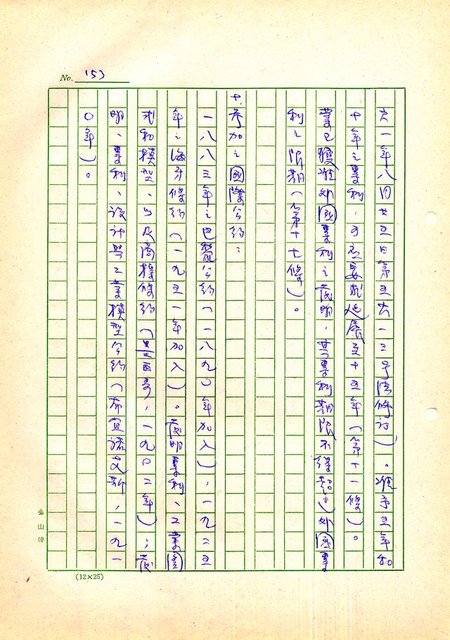 No. 153
六一年八月廿五日第五六一三号法修訂)。准予五年和
十年之專利,可应要求延展至十五年(第十一條)。
業已獲准外國專利之發明,其專利期限不得超过外國專
利之限期(第十七條)。
十.参加之國際公約:
一八八三年之巴黎公約(一八九〇年加入),一九二五
年之海牙條約(一九五一年加入)。發明專利、工業圖
式和模型、以及商標條約(墨西哥,一九〇二年);發
明、專利、設計與工業模型公約(布宜諾艾斯,一九一
〇年)。
金山牌
(12×25)